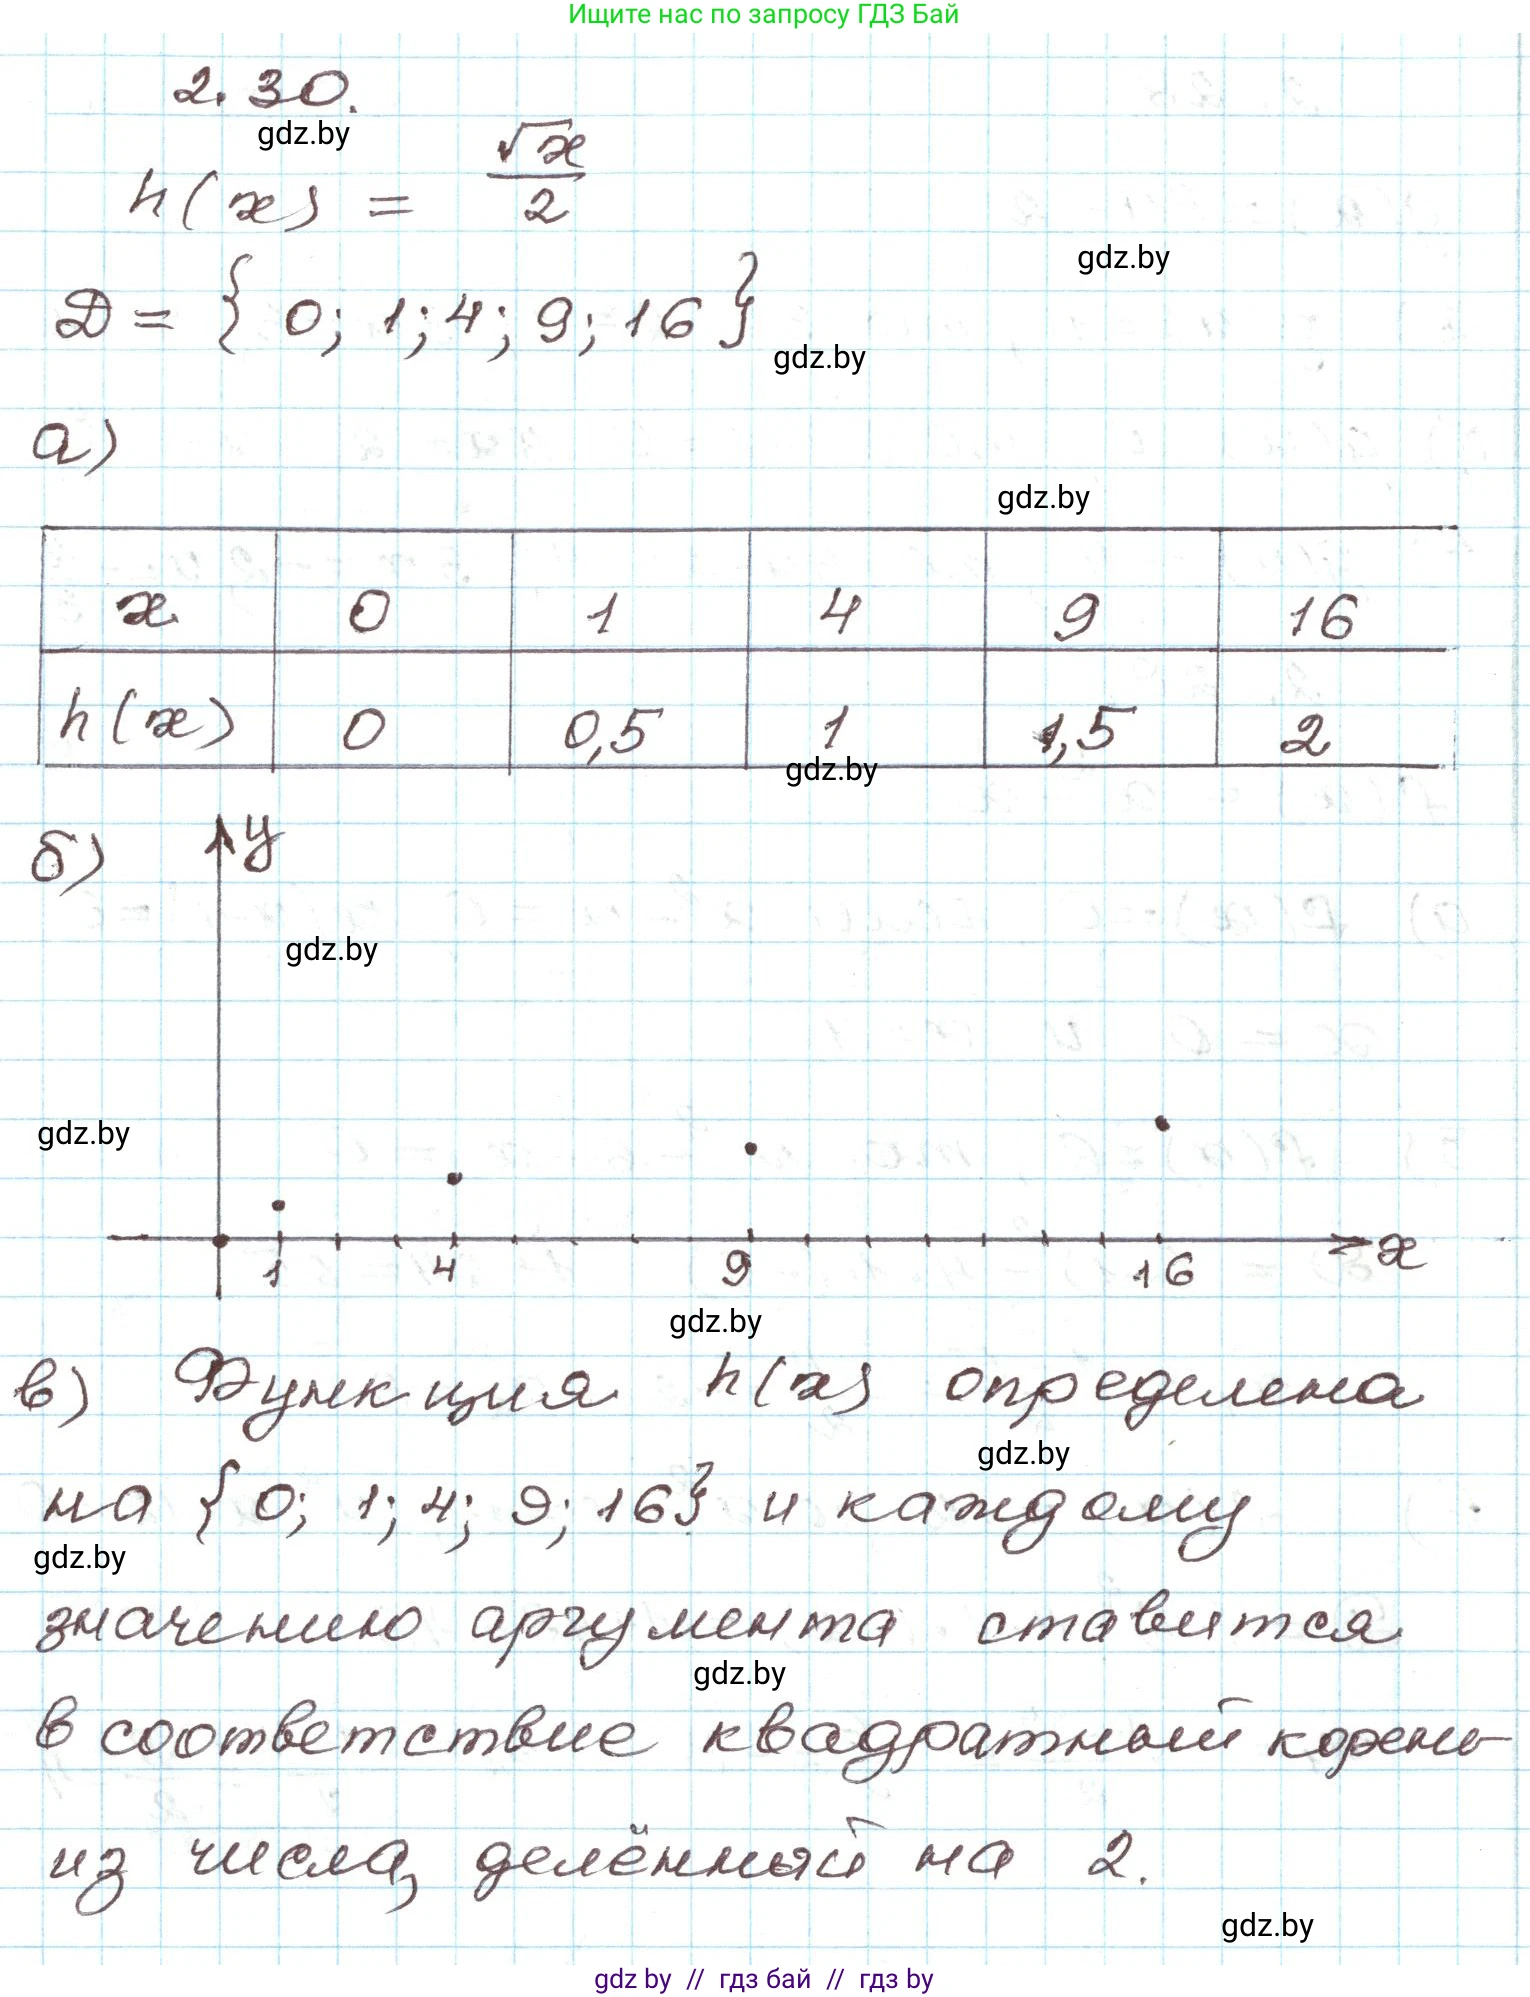 Ищите нас по запросу ГДЗ Бай
2.30.
gdz.by
h(x) = √x/2
gdz.by
D = { 0; 1; 4; 9; 16 }
gdz.by
а)
gdz.by
x 0 1 4 9 16
h(x) 0 0,5 1 1,5 2
gdz.by
б) y
gdz.by
gdz.by
1 4 9 16 x
gdz.by
в) Функция h(x) определена
gdz.by
на { 0; 1; 4; 9; 16} и каждому
gdz.by
значению аргумента ставится
gdz.by
в соответствие квадратный корень
из числа, делённый на 2.
gdz.by
gdz by // гдз бай // гдз by